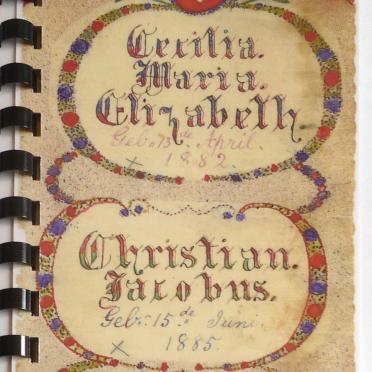 Cecilia.
Maria.
Elizabeth
Geb: 13de April.
× 1882.
Christian.
Jacobus.
Geb: 15de Juni.
× 1885.